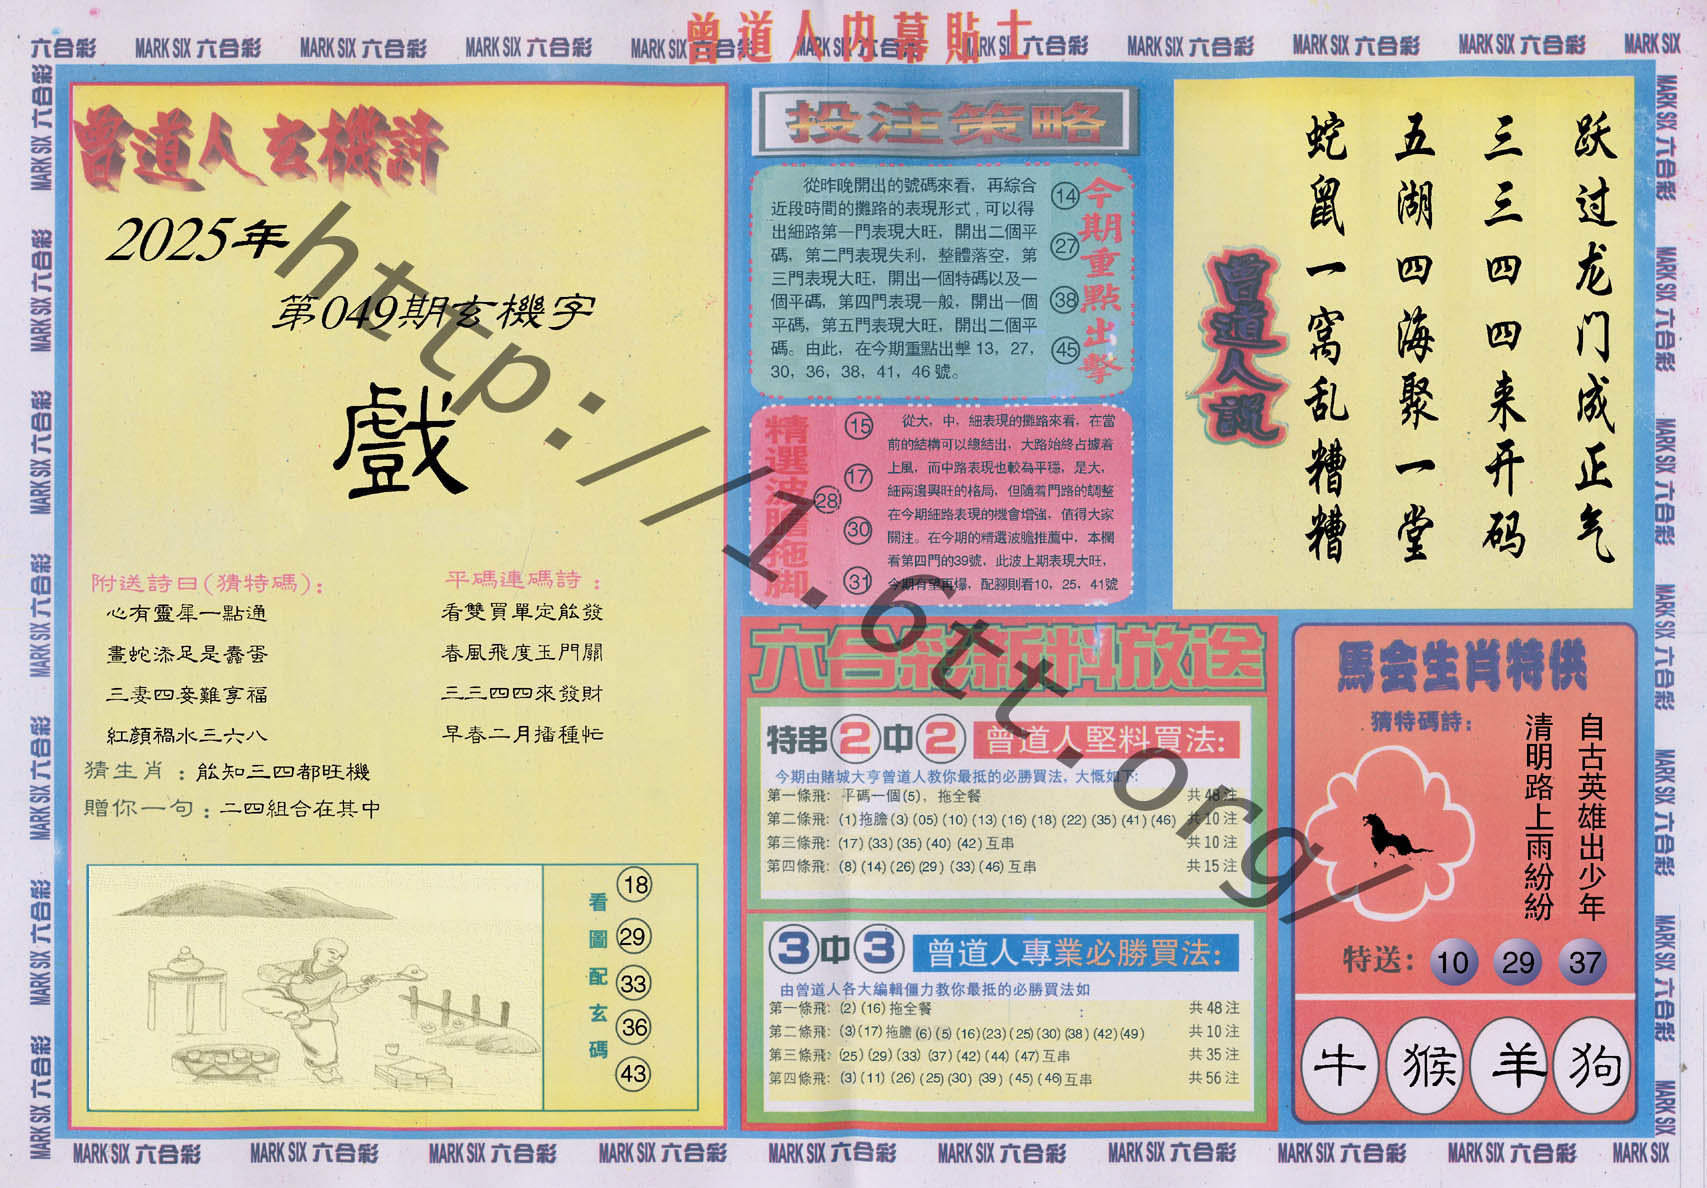 曾道人內幕貼士
六合彩 MARK SIX 六合彩 MARK SIX 六合彩 MARK SIX 六合彩 MARK SIX 六合彩 MARK SIX 六合彩 MARK SIX 六合彩 MARK SIX 六合彩 MARK SIX 六合彩 MARK SIX 六合彩 MARK SIX
曾道人玄機詩
2025年
第049期玄機字
戲
附送詩曰(猜特碼):
心有靈犀一點通
畫蛇添足是蠢蛋
三妻四妾難享福
紅顏禍水三六八
平碼連碼詩:
看雙買單定能發
春風飛度玉門關
三三四四來發財
早春二月播種忙
猜生肖:能知三四都旺機
贈你一句:二四組合在其中
看圖配玄碼
18
29
33
36
43
投注策略
從昨晚開出的號碼來看,再綜合
近段時間的攤路的表現形式,可以得
出細路第一門表現大旺,開出二個平
碼,第二門表現失利,整體落空,第
三門表現大旺,開出一個特碼以及一
個平碼,第四門表現一般,開出一個
平碼,第五門表現大旺,開出二個平
碼。由此,在今期重點出擊13,27,
30,36,38,41,46號。
14
27
38
45
今期重點出擊
精選波膽拖脚
15
17
28
30
31
從大,中,細表現的攤路來看,在當
前的結構可以總結出,大路始終占據着
上風,而中路表現也較為平穩,是大,
細兩邊興旺的格局,但隨着門路的調整
在今期細路表現的機會增強,值得大家
關注。在今期的精選波膽推薦中,本欄
看第四門的39號,此波上期表現大旺,
今期有望再爆,配腳則看10,25,41號
六合彩新料放送
特串2中2 曾道人堅料買法:
今期由賭城大亨曾道人教你最抵的必勝買法,大慨如下:
第一條飛: 平碼一個(5),拖全餐 共48注
第二條飛: (1)拖膽(3)(05)(10)(13)(16)(18)(22)(35)(41)(46) 共10注
第三條飛: (17)(33)(35)(40)(42)互串 共10注
第四條飛: (8)(14)(26)(29)(33)(46)互串 共15注
3中3 曾道人專業必勝買法:
由曾道人各大編輯僵力教你最抵的必勝買法如
第一條飛: (2)(16)拖全餐 : 共48注
第二條飛: (3)(17)拖膽(6)(5)(16)(23)(25)(30)(38)(42)(49) 共10注
第三條飛: (25)(29)(33)(37)(42)(44)(47)互串 共35注
第四條飛: (3)(11)(26)(25)(30)(39)(45)(46)互串 共56注
跃过龙门成正气
三三四四来开码
五湖四海聚一堂
蛇鼠一窝乱糟糟
曾道人說
馬会生肖特供
猜特碼詩:
自古英雄出少年
清明路上雨紛紛
特送: 10 29 37
牛 猴 羊 狗
http://1.6tt.org/
MARK SIX 六合彩 MARK SIX 六合彩 MARK SIX 六合彩 MARK SIX 六合彩 MARK SIX 六合彩 MARK SIX 六合彩 MARK SIX 六合彩 MARK SIX 六合彩 MARK SIX 六合彩 MARK SIX
MARK SIX 六合彩 MARK SIX 六合彩 MARK SIX 六合彩 MARK SIX 六合彩 MARK SIX 六合彩 MARK SIX 六合彩 MARK SIX 六合彩
MARK SIX 六合彩 MARK SIX 六合彩 MARK SIX 六合彩 MARK SIX 六合彩 MARK SIX 六合彩 MARK SIX 六合彩 MARK SIX